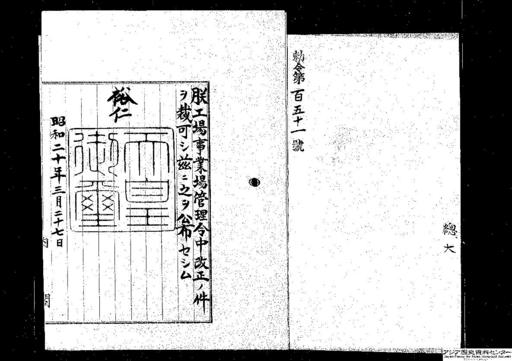 勅令第百五十一號
朕工場事業場管理令中改正ノ件
ヲ裁可シ茲ニ之ヲ公布セシム
裕仁
天皇御璽
昭和二十年三月二十七日
内閣
總大
アジア歴史資料センター